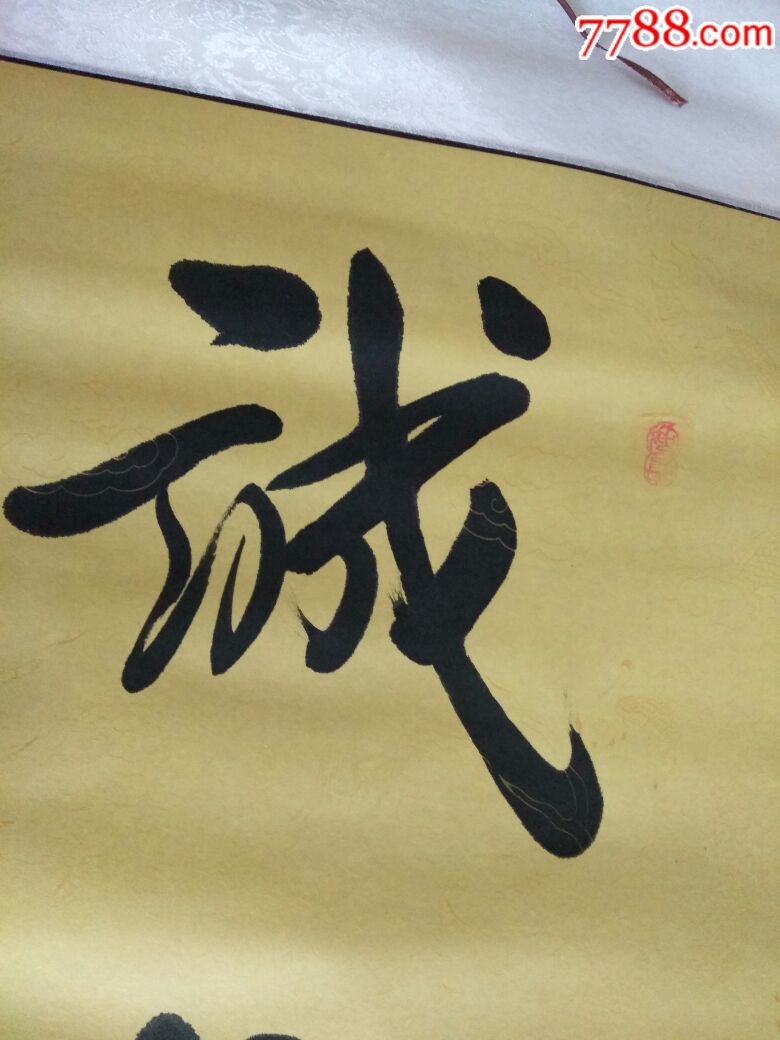 7788.com
诚